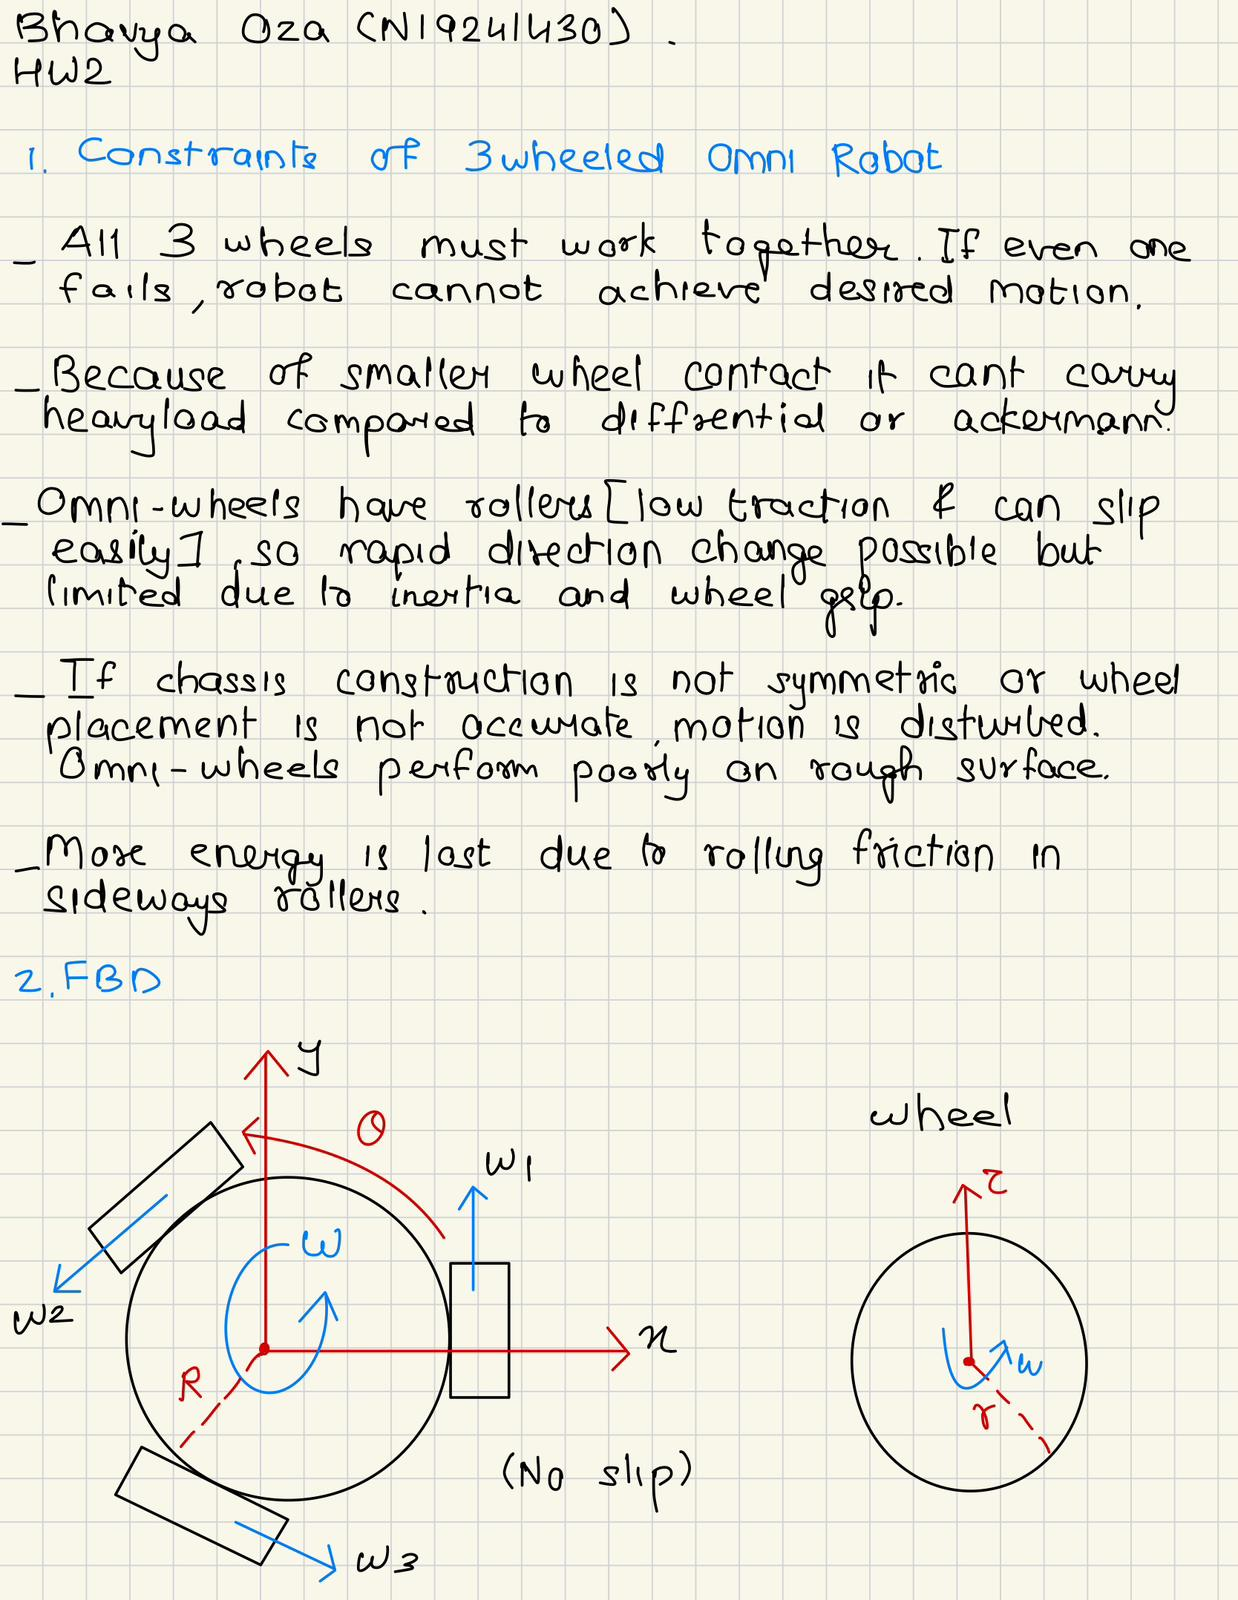 Bhavya Oza (N19241430).
HW2
1. Constraints of 3wheeled Omni Robot
- All 3 wheels must work together. If even one
fails, robot cannot achieve desired motion.
- Because of smaller wheel contact it cant carry
heavyload compared to diffrential or ackermann.
- Omni-wheels have rollers [low traction & can slip
easily], so rapid direction change possible but
limited due to inertia and wheel grip.
- If chassis construction is not symmetric or wheel
placement is not accurate, motion is disturbed.
Omni-wheels perform poorly on rough surface.
- More energy is lost due to rolling friction in
sideways rollers.
2. FBD
y
θ
wheel
ω1
τ
ω
ω2
x
R
ω
r
(No slip)
ω3